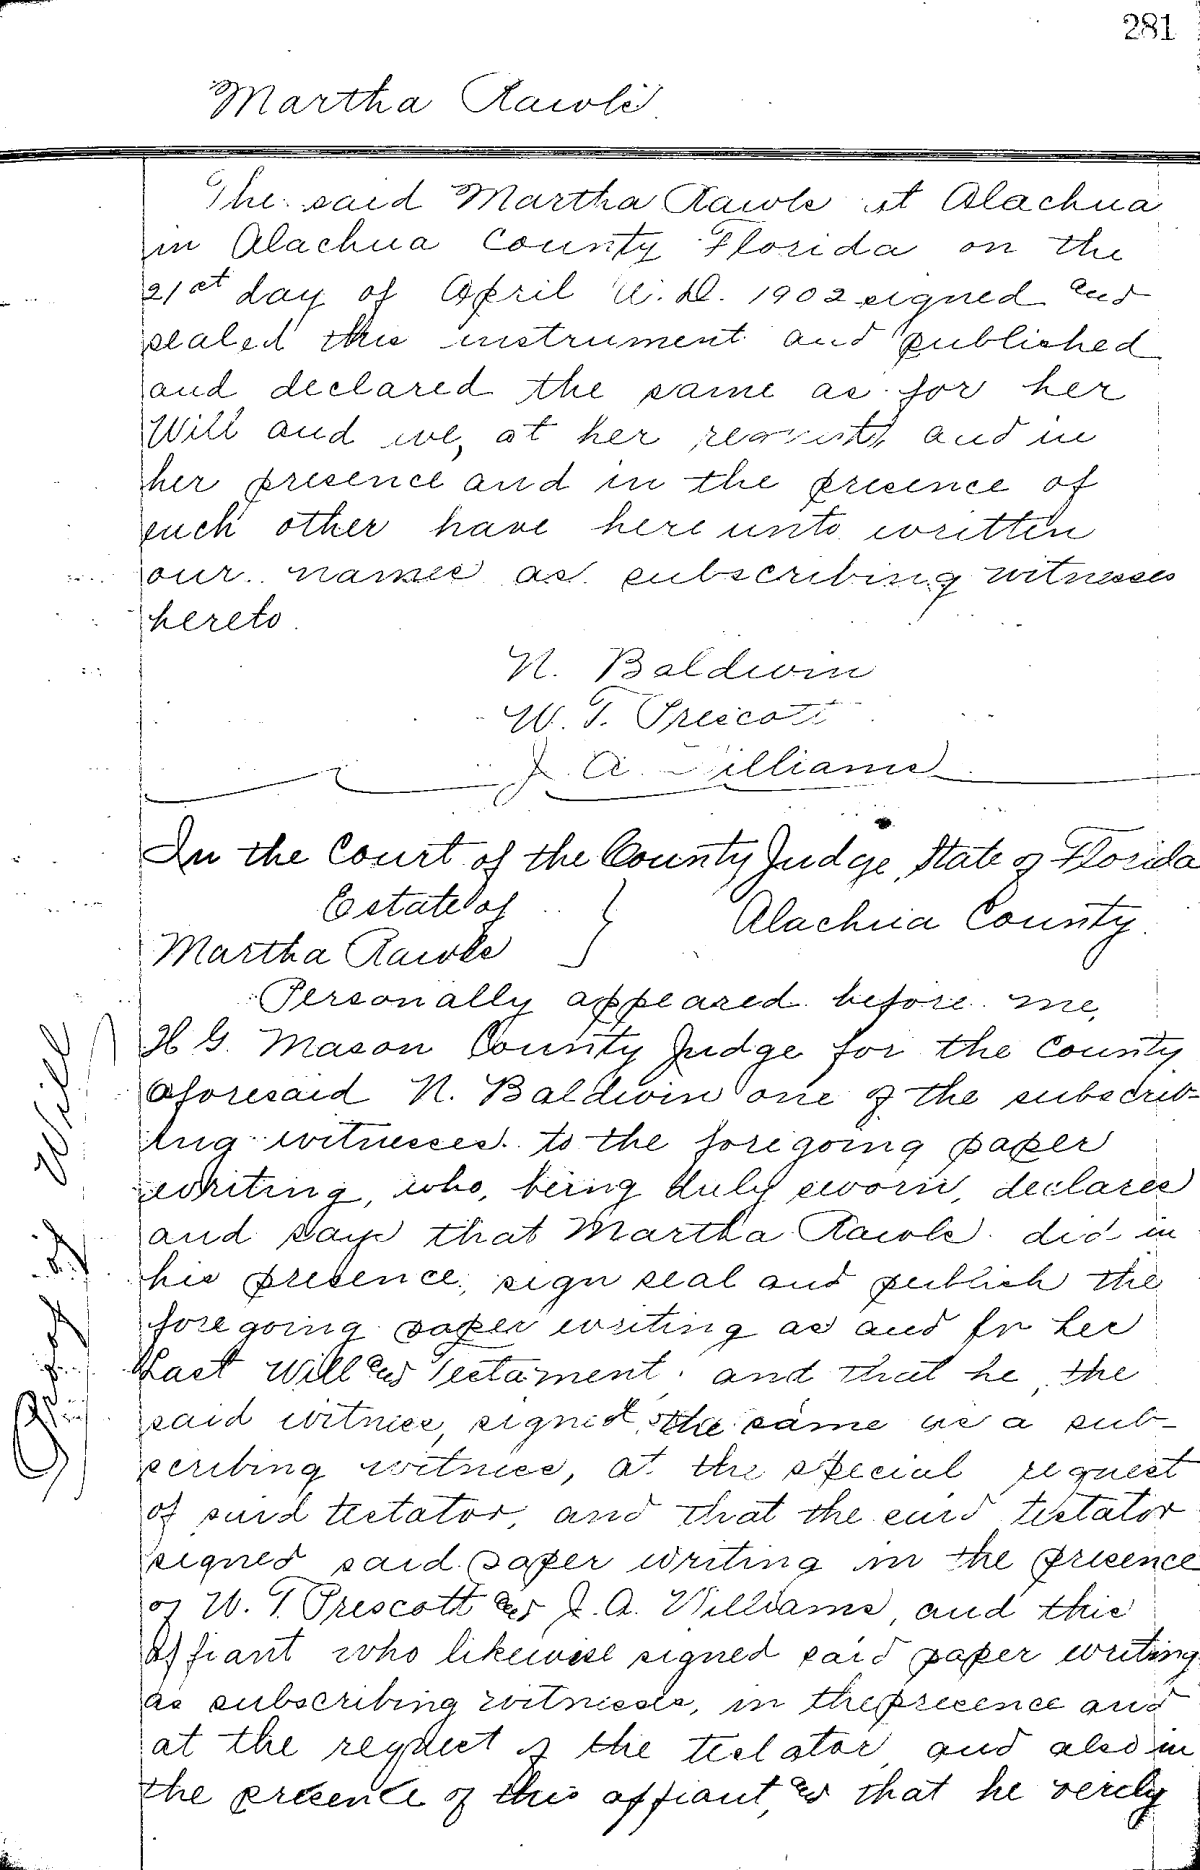 281
Martha Rawls
The said Martha Rawls at Alachua
in Alachua County Florida on the
21st day of April A.D. 1902 signed and
sealed this instrument and published
and declared the same as for her
Will and we, at her request, and in
her presence and in the presence of
each other have hereunto written
our names as subscribing witnesses
hereto.
N. Baldwin
W. T. Prescott
J. A. Williams
In the Court of the County Judge, State of Florida
Estate of
Alachua County.
Martha Rawls
Personally appeared before me,
H G. Mason County Judge for the County
aforesaid N. Baldwin one of the subscrib-
ing witnesses to the foregoing paper
writing, who, being duly sworn, declares
and says that Martha Rawls did in
his presence, sign seal and publish the
foregoing paper writing as and for her
Last Will and Testament, and that he, the
said witness, signed the same as a sub-
scribing witness, at the special request
of said testator, and that the said testator
signed said paper writing in the presence
of W. T. Prescott and J. A. Williams, and this
affiant who likewise signed said paper writing
as subscribing witnesses, in the presence and
at the request of the testator, and also in
the presence of this affiant, and that he verily
Proof of Will